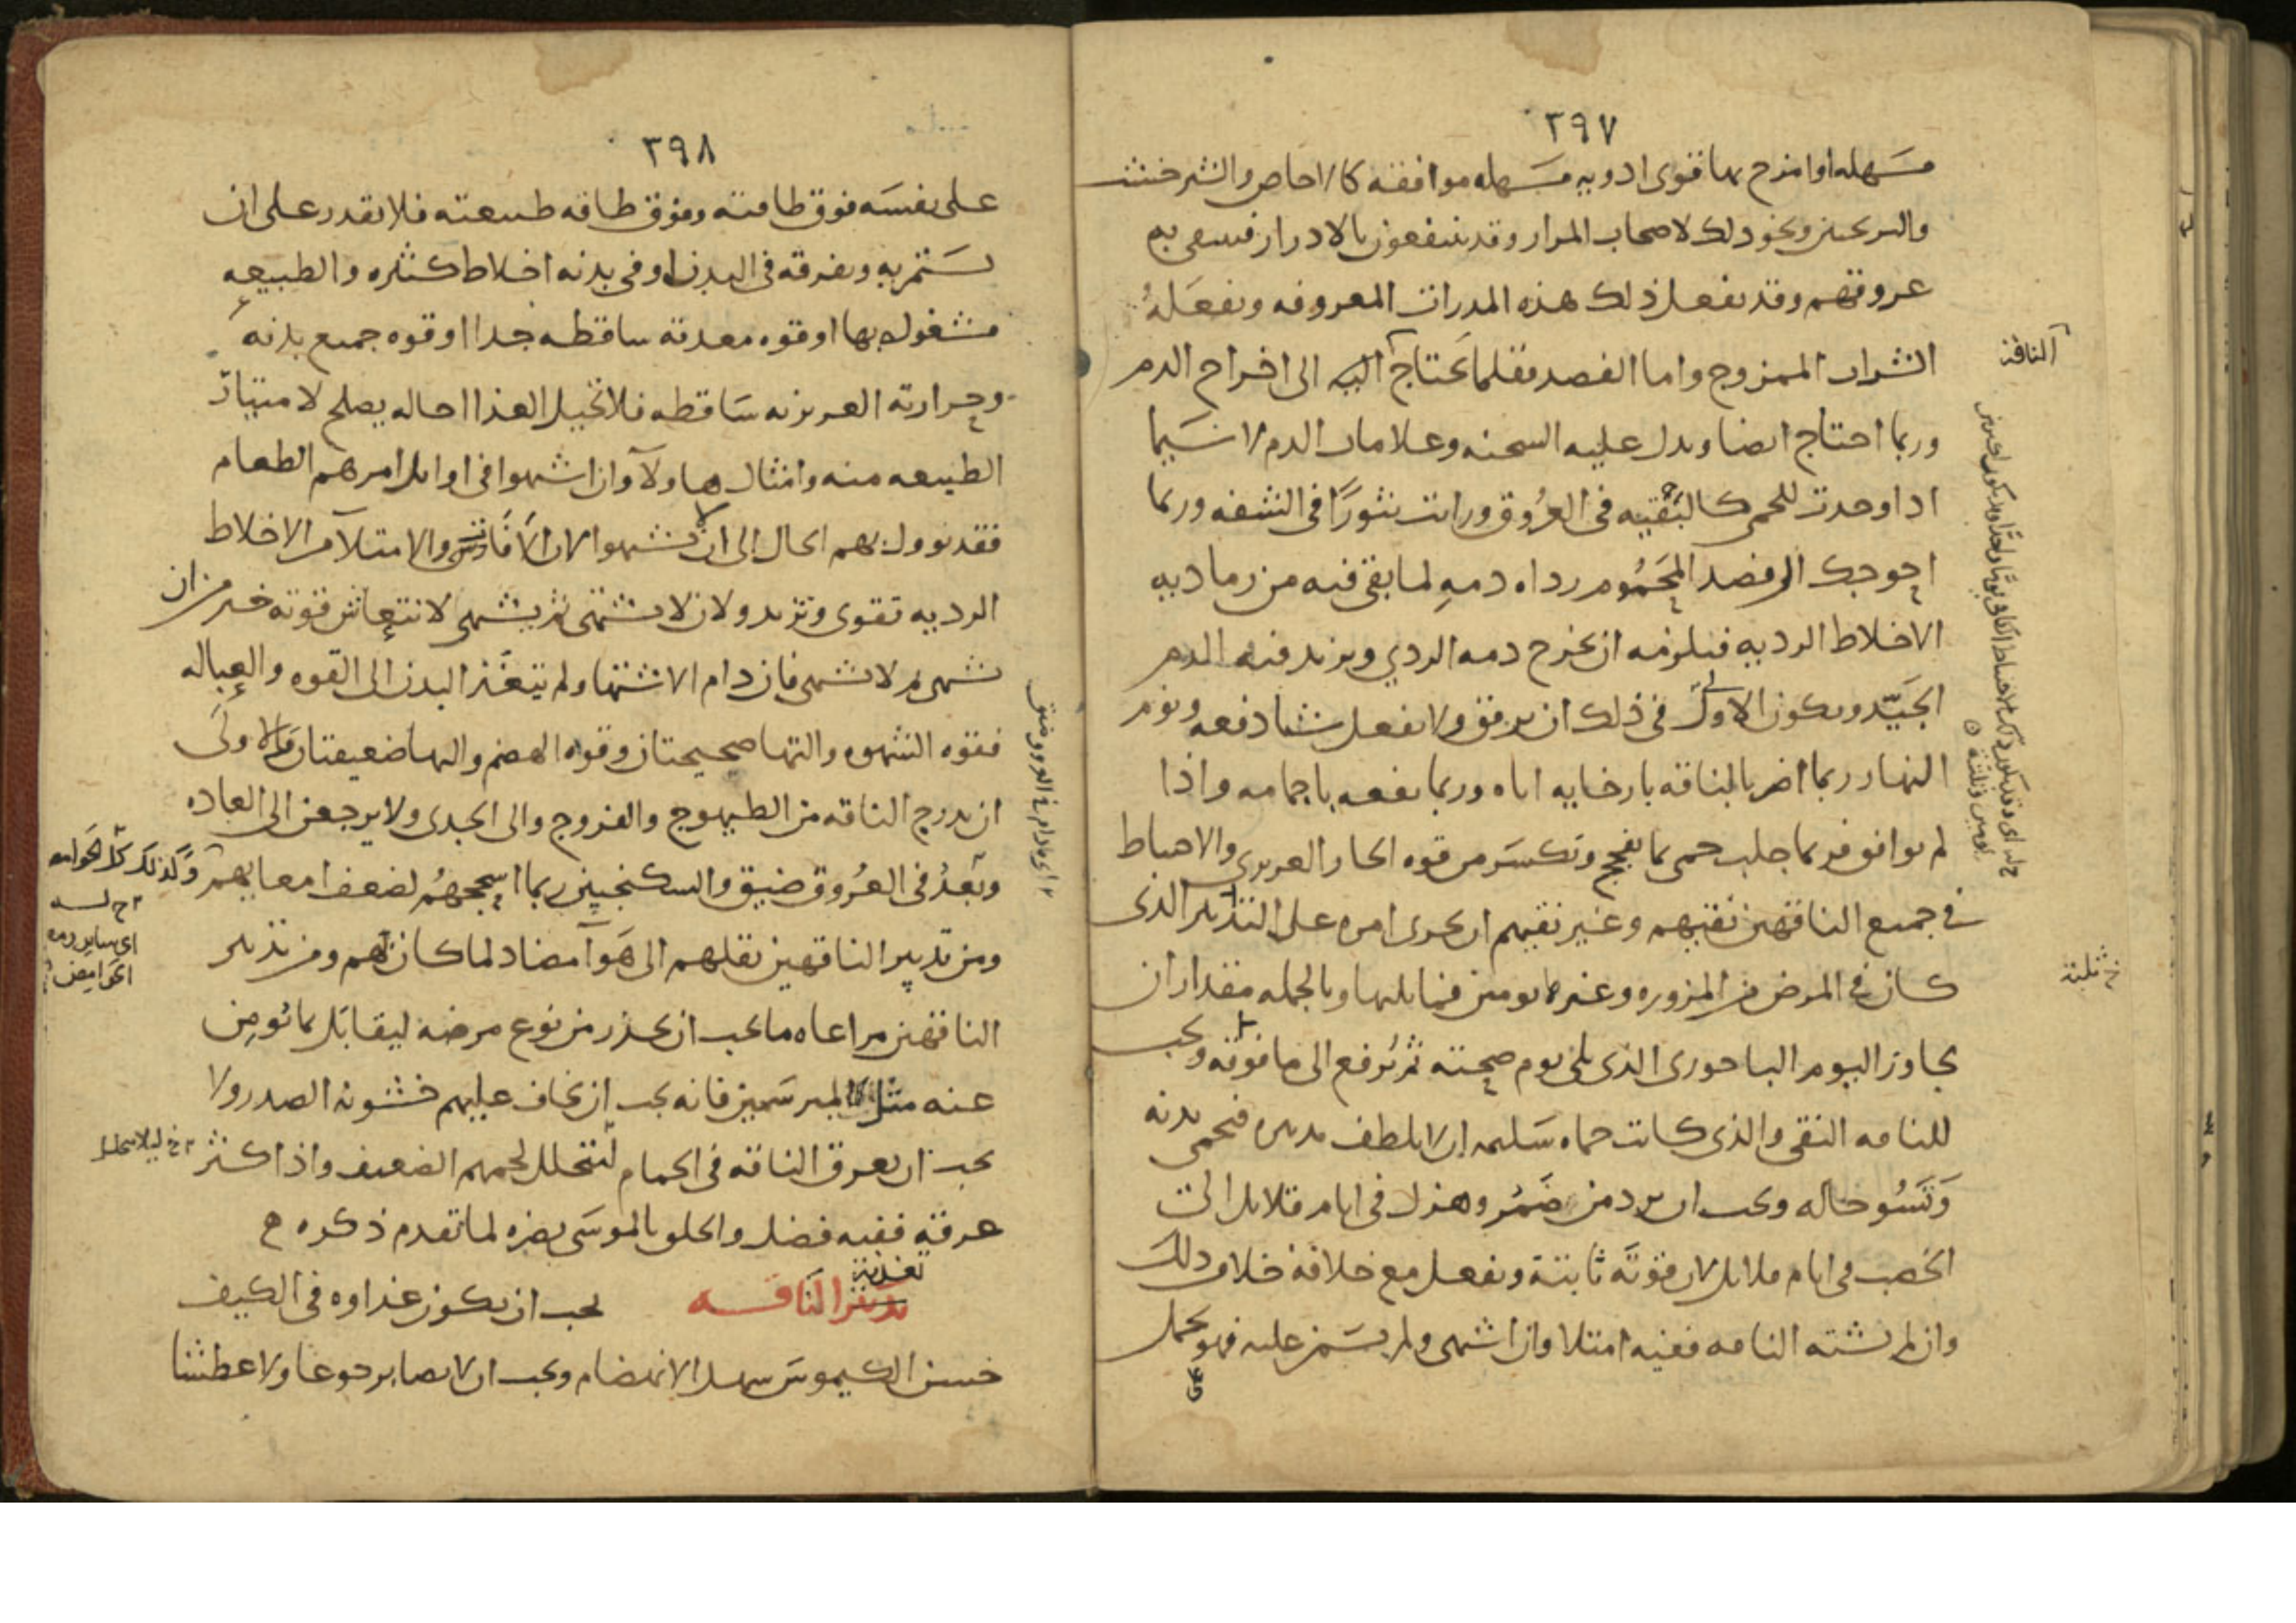 ٣٩٧
مسهله او امزج بها قوى ادويه مسهله موافقه كالاجاص والشيرخشت
والترنجبين ونحو ذلك لاصحاب المرار وقد ينتفعون بالادرار فينقى به
عروقهم وقد يفعل ذلك هذه المدرات المعروفه ويفعله
الشراب الممزوج واما الفصد فقلما يحتاج اليه الى اخراج الدم
الناقة
وربما احتاج ايضا ويدل عليه السحنه وعلامات الدم لا سيما
اذا وجدت للحمى كالبقيه فى العروق ورايت بثورًا فى الشفه وربما
احوجك الى فصد المحموم رداءه دمه لما بقى فيه من رماديه
الاخلاط الرديه فيلزمه ان يخرج دمه الردي ويزيد فيه الدم
الجيّد ويكون الاولى فى ذلك ان يرفق ولا يفعل شيئا دفعه ونوم
النهار ربما اضر بالناقه بارخايه اياه وربما نفعه باجمامه واذا
لم يوافق فربما جلب حمى بما يفجج ويكسر من قوه الحار الغريزى والاحتياط
فى جميع الناقهين نقيهم وغير نقيهم ان يجرى امره على التدبير الذى
كان فى المرض من المزوره وغيرها يومين فما يليها وبالجمله مقدار ان
خ ثلثة
يجاوز اليوم الباحورى الذى يلى يوم صحته ثم يرفع الى ما فوقه ويجب
للناقه النقى والذى كانت حماه سليمه ان لا يلطف تدبيره فيحمى بدنه
وتسو حاله ويجب ان يرد من ضمر وهزل فى ايام قلايل الى
الخصب فى ايام قلايل لان قوته ثابتة ويفعل مع خلافه خلاف ذلك
وان لم يشته الناقه ففيه امتلا وان اشتهى ولم يسمن عليه فهو يحمل
٣٩٨
على نفسه فوق طاقته وفوق طاقه طبيعته فلا يقدر على ان
يستمريه ويفرقه فى البدن او فى بدنه اخلاط كثيره والطبيعه
مشغوله بها او قوه معدته ساقطه جدا او قوه جميع بدنه
وحرارته الغريزيه ساقطه فلا تحيل الغذا احاله يصلح لامتياز
الطبيعه منه وامثال هاولآ وان اشتهوا فى اوايل امرهم الطعام
فقد يوول بهم الحال الى ان لا يشتهوا لان الآفات والامتلآ من الاخلاط
الرديه تقوى وتزيد ولان لا يشتهى ثم يشتهى لانتعاش قوته خير من ان
يشتهى ثم لا يشتهى فان دام الاشتها ولم يتغذ البدن الى القوه والعباله
فقوه الشهوه والتها صحيحتان وقوه الهضم والتها ضعيفتان والاولى
ان يدرج الناقه من الطيهوج والفروج والى الجدى ولا يرجعن الى العاده
وبعدُ فى العروق ضيق والسكنجبين ربما اسحجهم لضعف امعايهم وكذلك كل الحوامض
اى ساير
الحوامض
ومن تدبير الناقهين نقلهم الى هوآ مضاد لما كان بهم ومن تدبير
الناقهين مراعاه ما يجب ان يحذر من نوع مرضه ليقابل بما يومن
عنه مثل المبرسمين فانه يجب ان يخاف عليهم خشونه الصدر ولا
يجب ان يعرق الناقه فى الحمام لتتحلل لحمهم الضعيف واذا كثر
خ ليلا يتحلل
عرقه ففيه فضل والحلق بالموسى يضره لما تقدم ذكره ه
تغذية
تدبير الناقه يجب ان يكون غذاوه فى الكيف
حسن الكيموس سهل الانهضام ويجب ان لا يصابر جوعا ولا عطشا